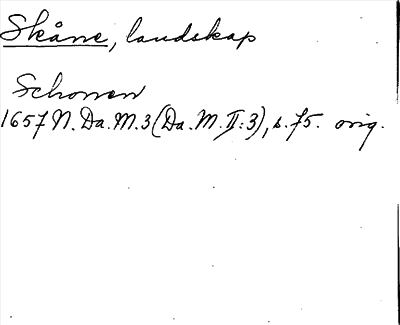 Skåne, landskap
Schonen
1657 N. Da. M. 3 (Da. M. II: 3), s. 75. orig.